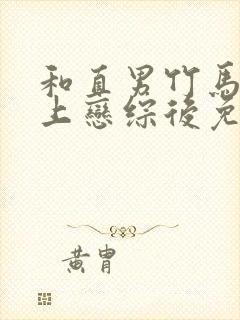 和直男竹馬
上戀綜後免
黃胄